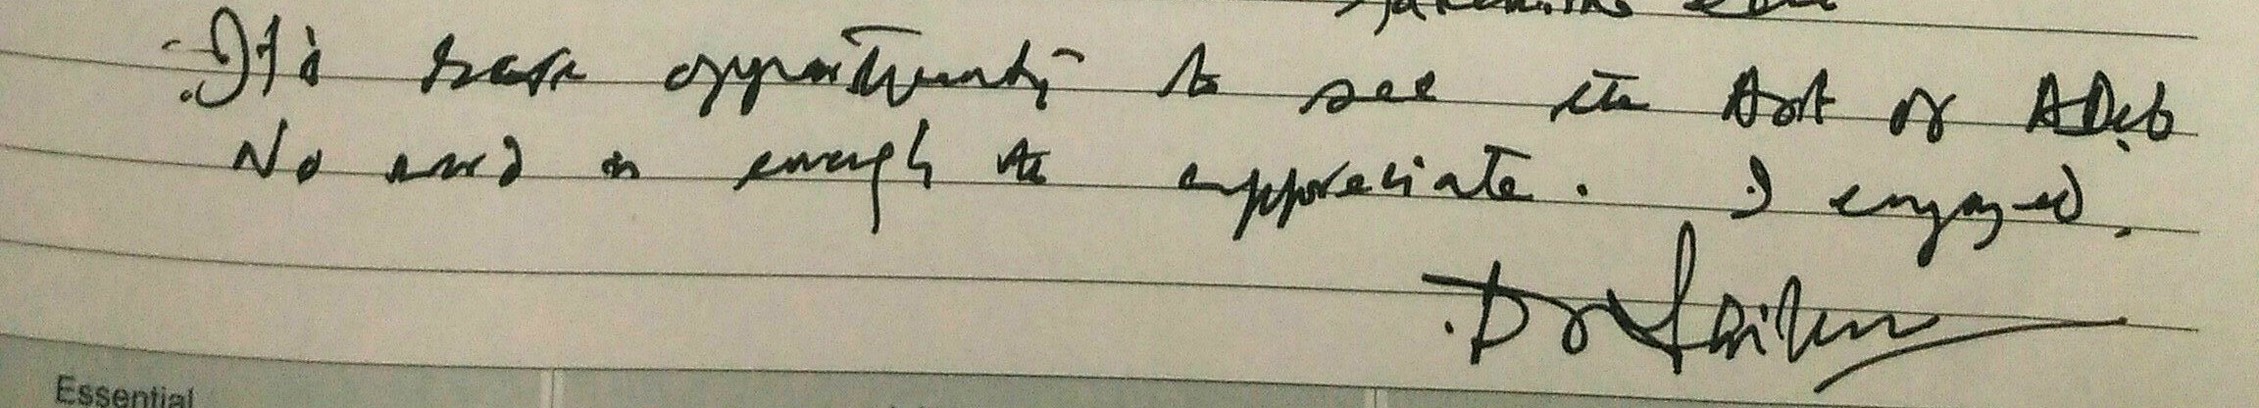 It's rare opportunity to see the Art of ADeb
No word is enough to appreciate. I enjoyed.
Dr
Essential